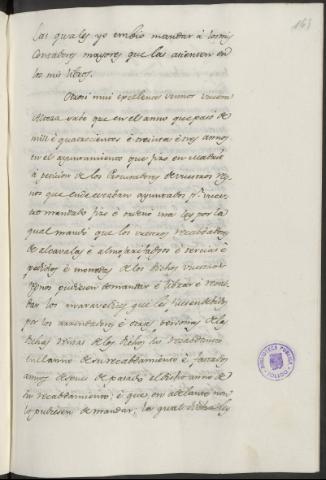 las quales yo embio mandar à los mis
Contadores mayores que las asienten en
los mis libros.
Otrosi mui excelente
Alteza sabe que en el anno que pasó de
mill é quatrocientos é treinta é tres annos
en el ayuntamiento que fizo en
à peticion de los Procuradores de vuestros Rey-
nos que ende estaban ayuntados p.r vues-
tro mandado fizo é ordenó una ley por la
qual mandó que los vuestros recabdadores
de alcavalas é almoxarifadgos é tercias é
pedidos é monedas de los dichos vuestros
Regnos pudiesen demandar é librar é
dar los maravedises que les fuesen debidos
por los arrendadores é otras personas de las
dichas rentas de los dichos sus recabdamientos
en el anno de su recabdamiento é fasta dos
annos despues de pasado el dicho anno de
su recabdamiento; é que en adelante non
lo pudiesen demandar; la qual dicha ley
BIBLIOTECA PUBLICA
TOLEDO